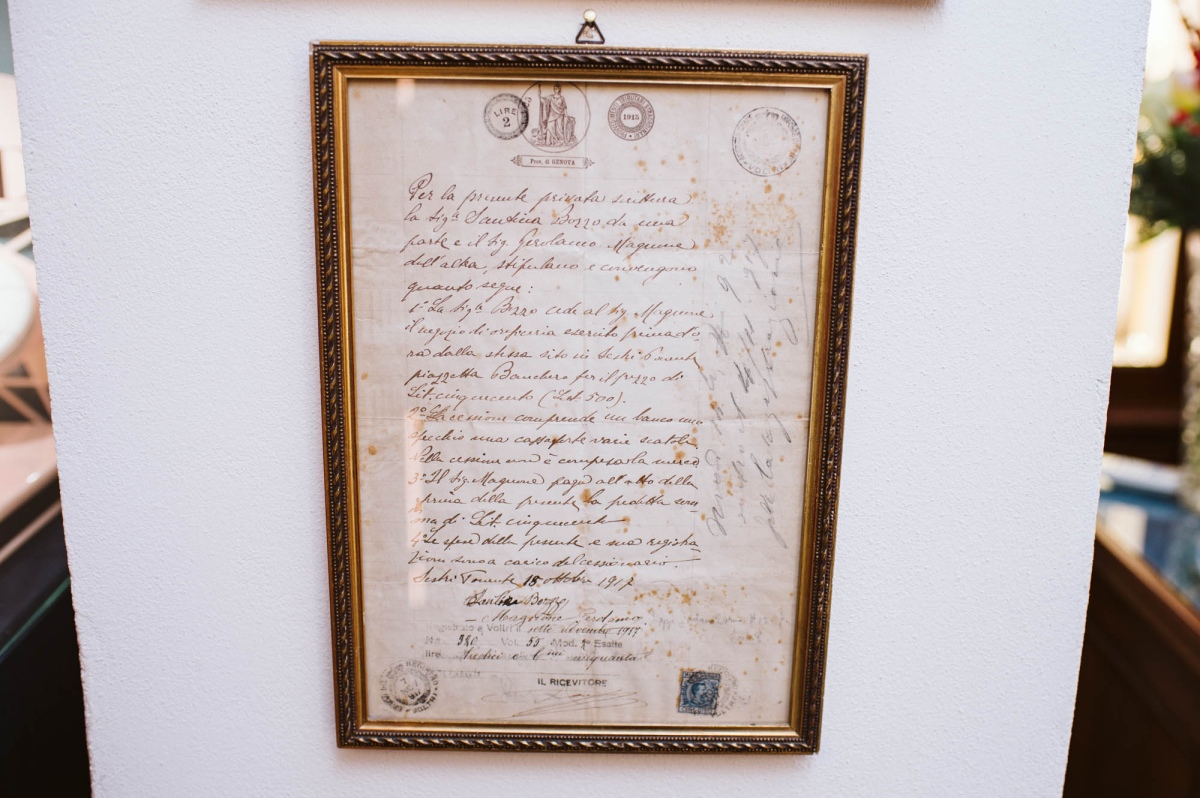 LIRE 2
1915
Prov. di GENOVA
Per la presente privata scrittura
la Sig.ª Santina Bozzo da una
parte e il Sig. Gerolamo Magnone
dell'altra, stipulano e convengono
quanto segue:
1º La Sig.ª Bozzo cede al Sig. Magnone
il negozio di oreficeria esercito prima d'o-
ra dalla stessa sito in Sestri Ponente
piazzetta Banchero per il prezzo di
Lit. cinquecento (Lit. 500).
2º La cessione comprende un banco uno
specchio una cassaforte varie scatole
Nella cessione non è compresa la merce
3º Il Sig. Magnone paga all'atto della
firma della presente la predetta som-
ma di Lit. cinquecento
4º Le spese della presente e sua registra-
zione sono a carico del cessionario.
Sestri Ponente 15 ottobre 1917
Santina Bozzo
Magnone Gerolamo
Registrato a Voltri il sette novembre 1917
No. 380 Vol. 55 Mod. Esatte
lire tredici e C.mi cinquanta
IL RICEVITORE